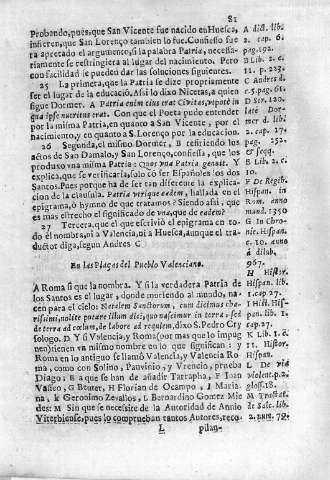 81
Probando, pues, que San Vicente fue nacido en Huesca,
infieren, que San Lorenço tambien lo fue. Confiesso fue
ra apretado el argumento, si la palabra Patria, necessa-
riamente se restringiera al lugar del nacimiento. Pero
con facilidad se pueden dar las soluciones siguientes.
25 La primera, que la Patria se dize propriamente
ser el lugar de la educacio. Assi lo dixo Nicetas, a quien
sigue Dormer. A Patria enim eius erat Civitas, nopote in
qua ipse nutritus erat. Con que el Poeta pudo entender
por la misma Patria, en quanto a San Vicente, por el
nacimiento, y en quanto a S. Lorenço por la educacion.
26 Segunda, el mismo Dormer, B refiriendo los
actos de San Damaso, y San Lorenço, confiessa, que los
produxo vna misma Patria: Quos vna Patria genuit. Y
explica, que se verificaria, solo có ser Españoles los dos
Santos. Pues porque ha de ser tan diferente la explica-
cion de la clausula. Patria verique eadem, hallada en el
epigrama, ò hymno de que tratamos? Siendo assi, que
es mas estrecho el significado de vna, que de eadem?
27 Tercera, que el que escrivió el epigrama en to-
do el nombra, ni a Valencia, ni a Huesca, aunque el tra-
ductor diga, segun Andres C
En las Plaças del Pueblo Valenciano.
A Roma si que la nombra. Y si la verdadera Patria de
los Santos es el lugar, donde muriendo al mundo, na-
cen para el cielo: Natalem Sanctorum, cum dicimus cha-
rissimi, nolite putare illum dici, quo nascimur in terra, sed
de terra ad cœlum, de labore ad requiem, dixo S. Pedro Cry
sologo. D Y si Valencia, y Roma (por mas que lo impug
nen) tienen vn mismo nombre en lo que significan: y
Roma en lo antiguo se llamó Valencia, y Valencia Ro-
ma, como con Solino, Panvinio, y Vrencio, prueba
Diago; E a que se han de añadir Tarrapha, F Iuan
Vasco, G Beuter, H Florian de Ocampo, I Maria-
na, K Geronimo Zevallos, L Bernardino Gomez Mie
des: M Sin que se necessite de la Autoridad de Annio
Viterbiense, pues lo comprueban tantos Autores, reco-
L pilan-
A dict. lib.
2. cap. 6.
pag. 192.
B Lib. 2. c.
11. p. 223.
C Andres d.
c. 5. pag. 61.
D Ser. 120.
lato Dor-
mer d. lib.
2. cap. 17.
pag. 252.
& seqq.
E Lib. 2. c.
10.
F De Regib.
Hispan. in
Rom. anno
mund. 1350
G In Chro-
nic. Hispan.
c. 10. anno
à dilub.
967.
H Histor.
Hispan. lib.
1. cap. 27.
I Hist. His-
pan. lib. 1.
cap. 27.
K Lib. 1. c.
11. Histor.
Hispan.
L De via
violent. p. 2.
gloss. 18.
M Tractat.
de Sale. lib.
2. num. 78.